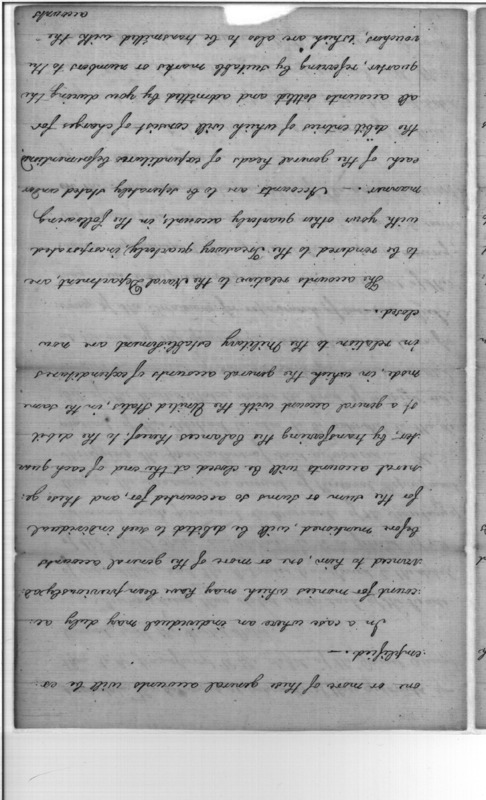 one or more of these general accounts will be ex-
emplified. —
In a case where an individual may duly ac-
count for monies which may have been previously ad-
vanced to him, one or more of the general accounts
before mentioned, will be debited to such individual
for the sum or sums so accounted for and these ge-
neral accounts will be closed at the end of each quar-
ter, by transferring the balances thereof, to the debit
of a general account with the United States, in the same
mode, in which the general accounts of expenditures
in relation to the Military establishment are now
closed.
The accounts relative to the Naval Department, are
to be rendered to the Treasury quarterly, incorporated
with your other quarterly accounts, in the following
manner. — Accounts are to be separately stated under
each of the general heads of expenditures beforementioned
the debit entries of which will consist of charges for
all accounts settled and admitted by you during the
quarter, referring by suitable marks or numbers to the
vouchers, which are also to be transmitted with the
accounts